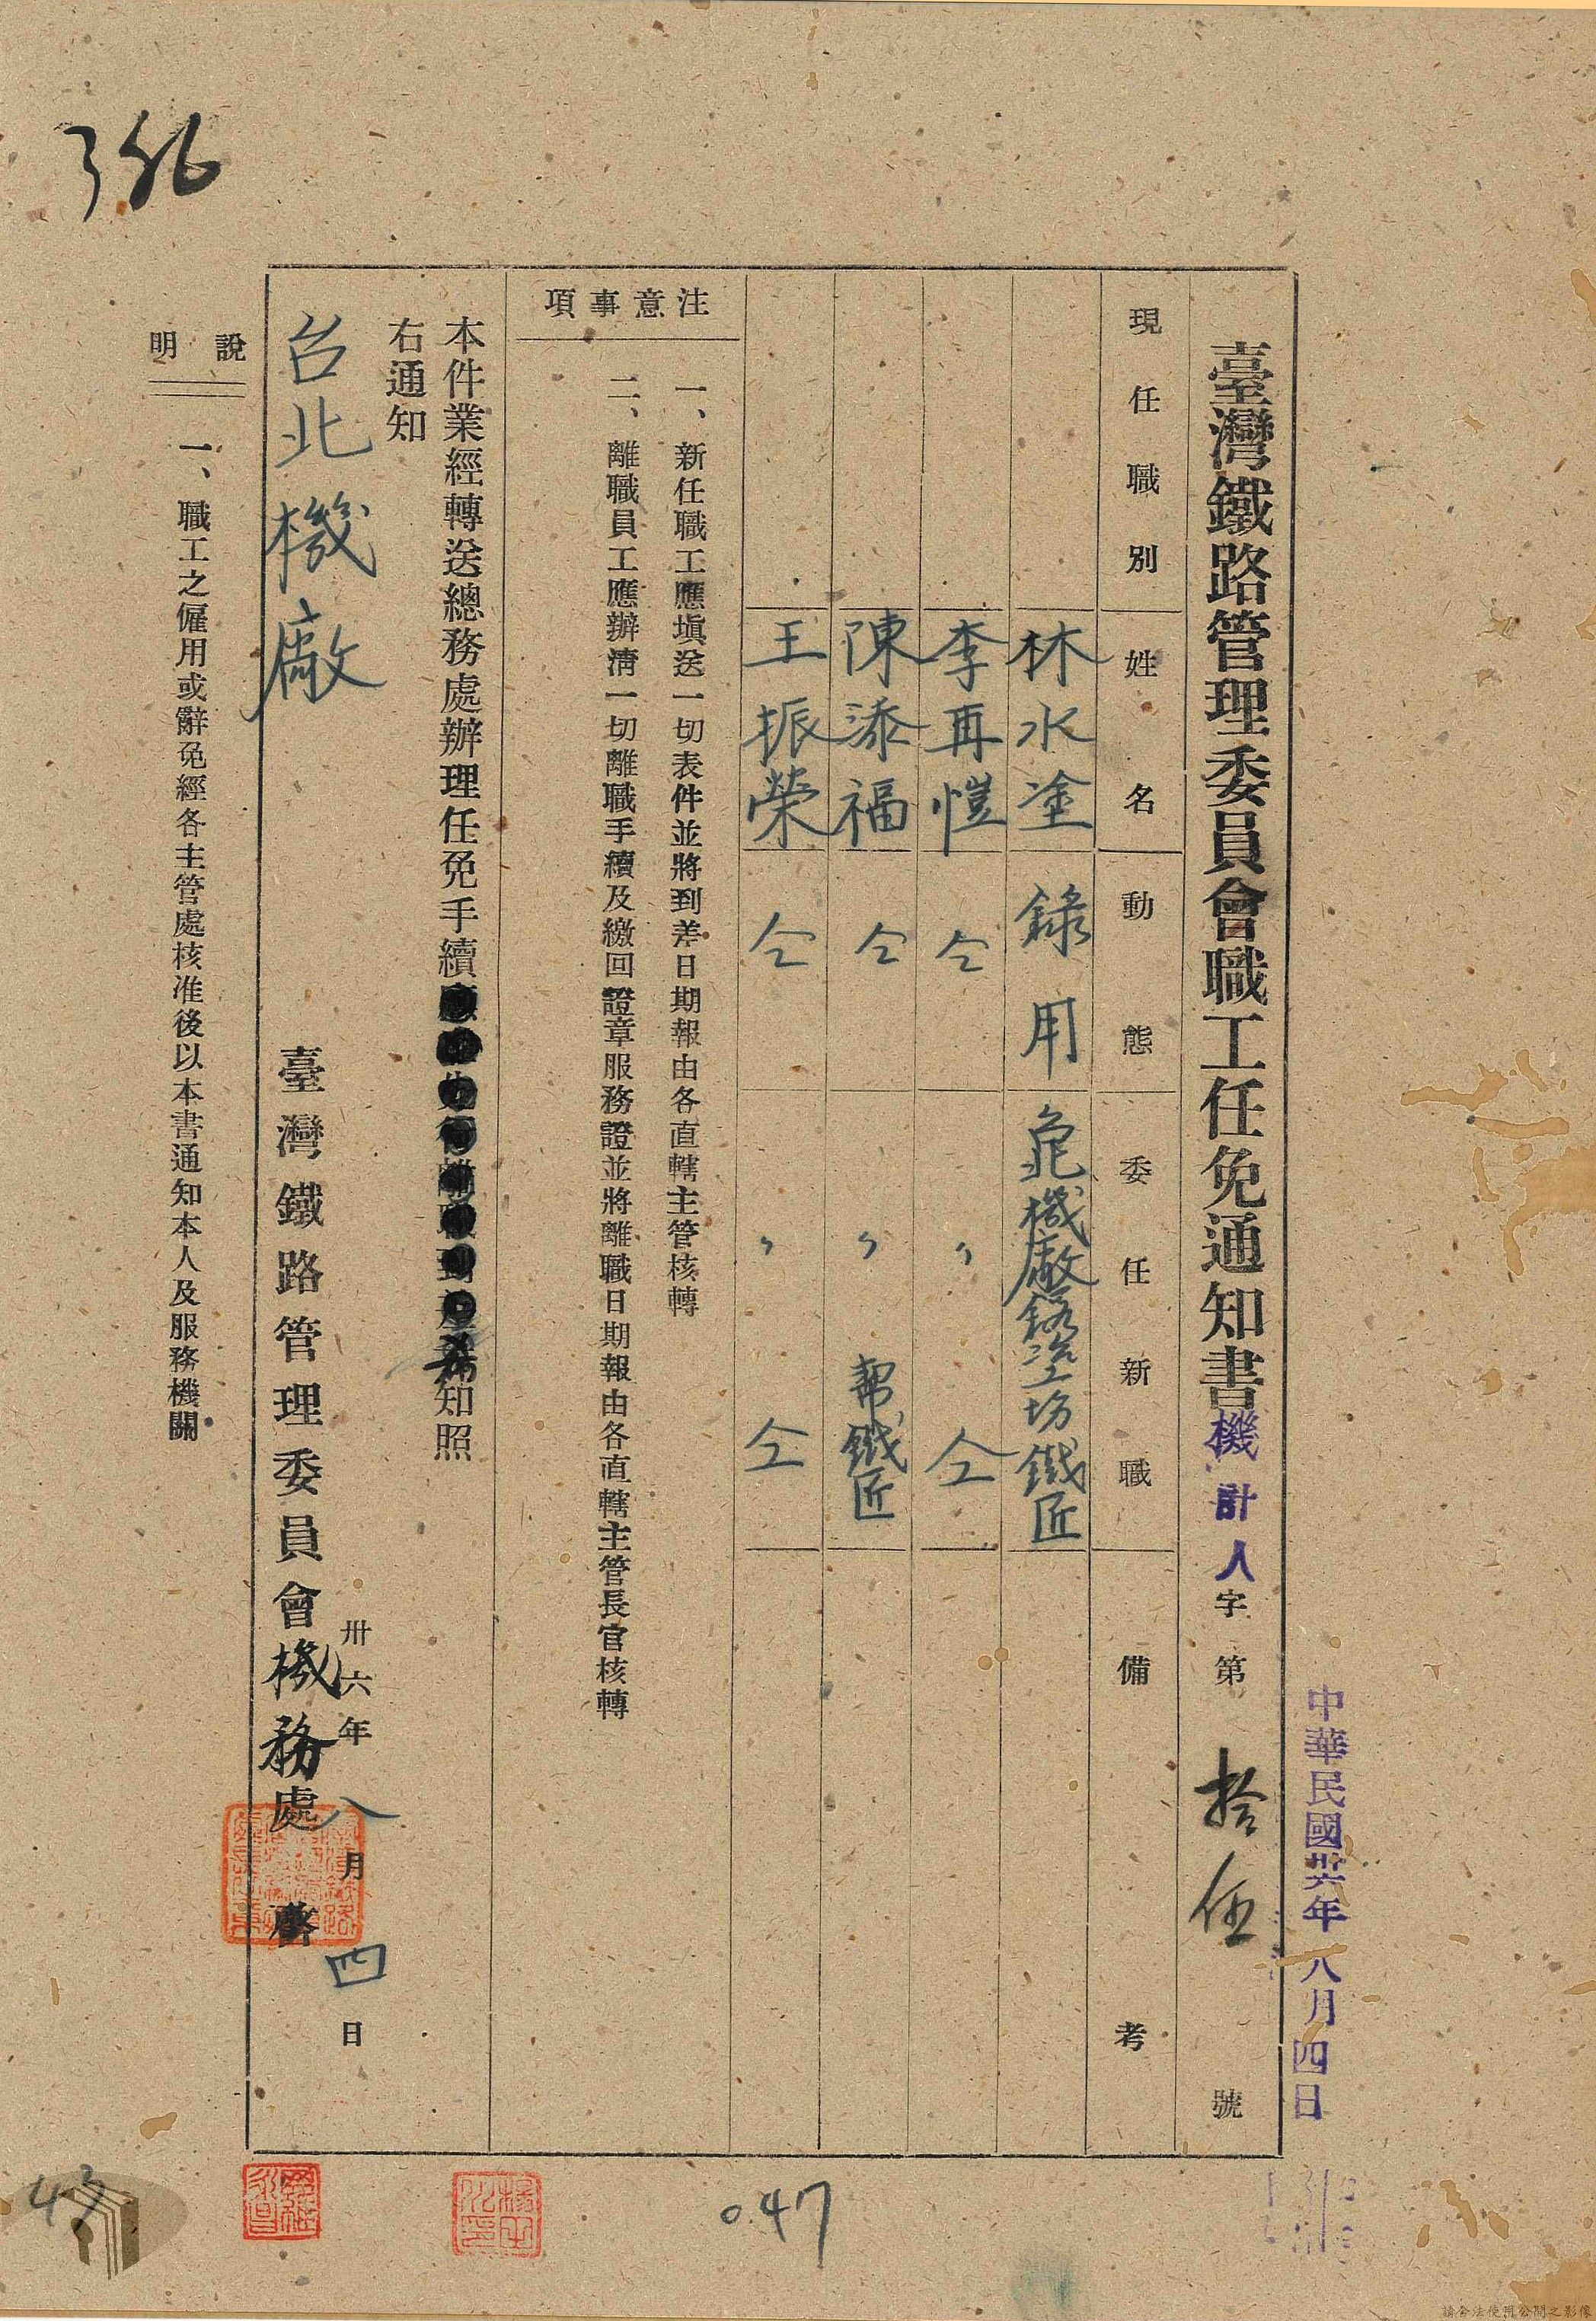 中華民國卅六年八月四日
臺灣鐵路管理委員會職工任免通知書 機計人字第拾伍號
現任職別 姓名 動態 委任新職 備考
林水塗 錄用 機廠 坊鐵匠
李再愷 仝 〃 仝
陳添福 仝 〃 幫鐵匠
王振榮 仝 〃 仝
注意事項
一、新任職工應塡送一切表件並將到差日期報由各直轄主管核轉
二、離職員工應辦淸一切離職手續及繳回證章服務證並將離職日期報由各直轄主管長官核轉
本件業經轉送總務處辦理任免手續希知照
右通知
台北機廠
臺灣鐵路管理委員會機務處啓
卅六年八月四日
說明
一、職工之僱用或辭免經各主管處核准後以本書通知本人及服務機關
047
43
請合法使用公開之影像